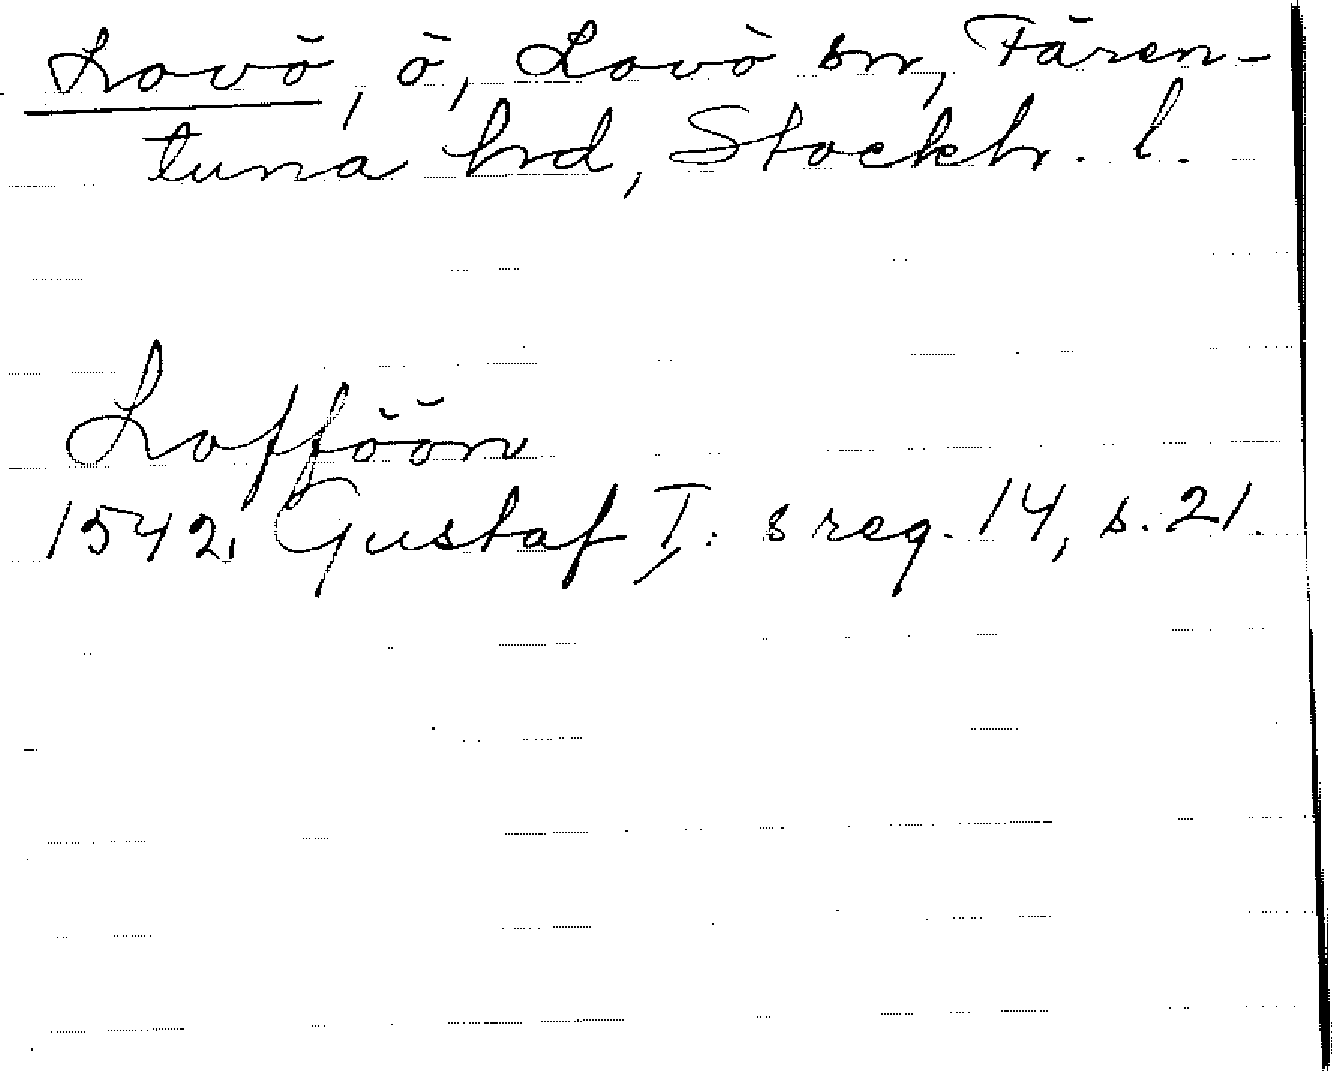 Lovö, ö, Lovö sn, Fären-
tuna hrd, Stockh. l.
Lofföön
1542. Gustaf I: s reg. 14, s. 21.